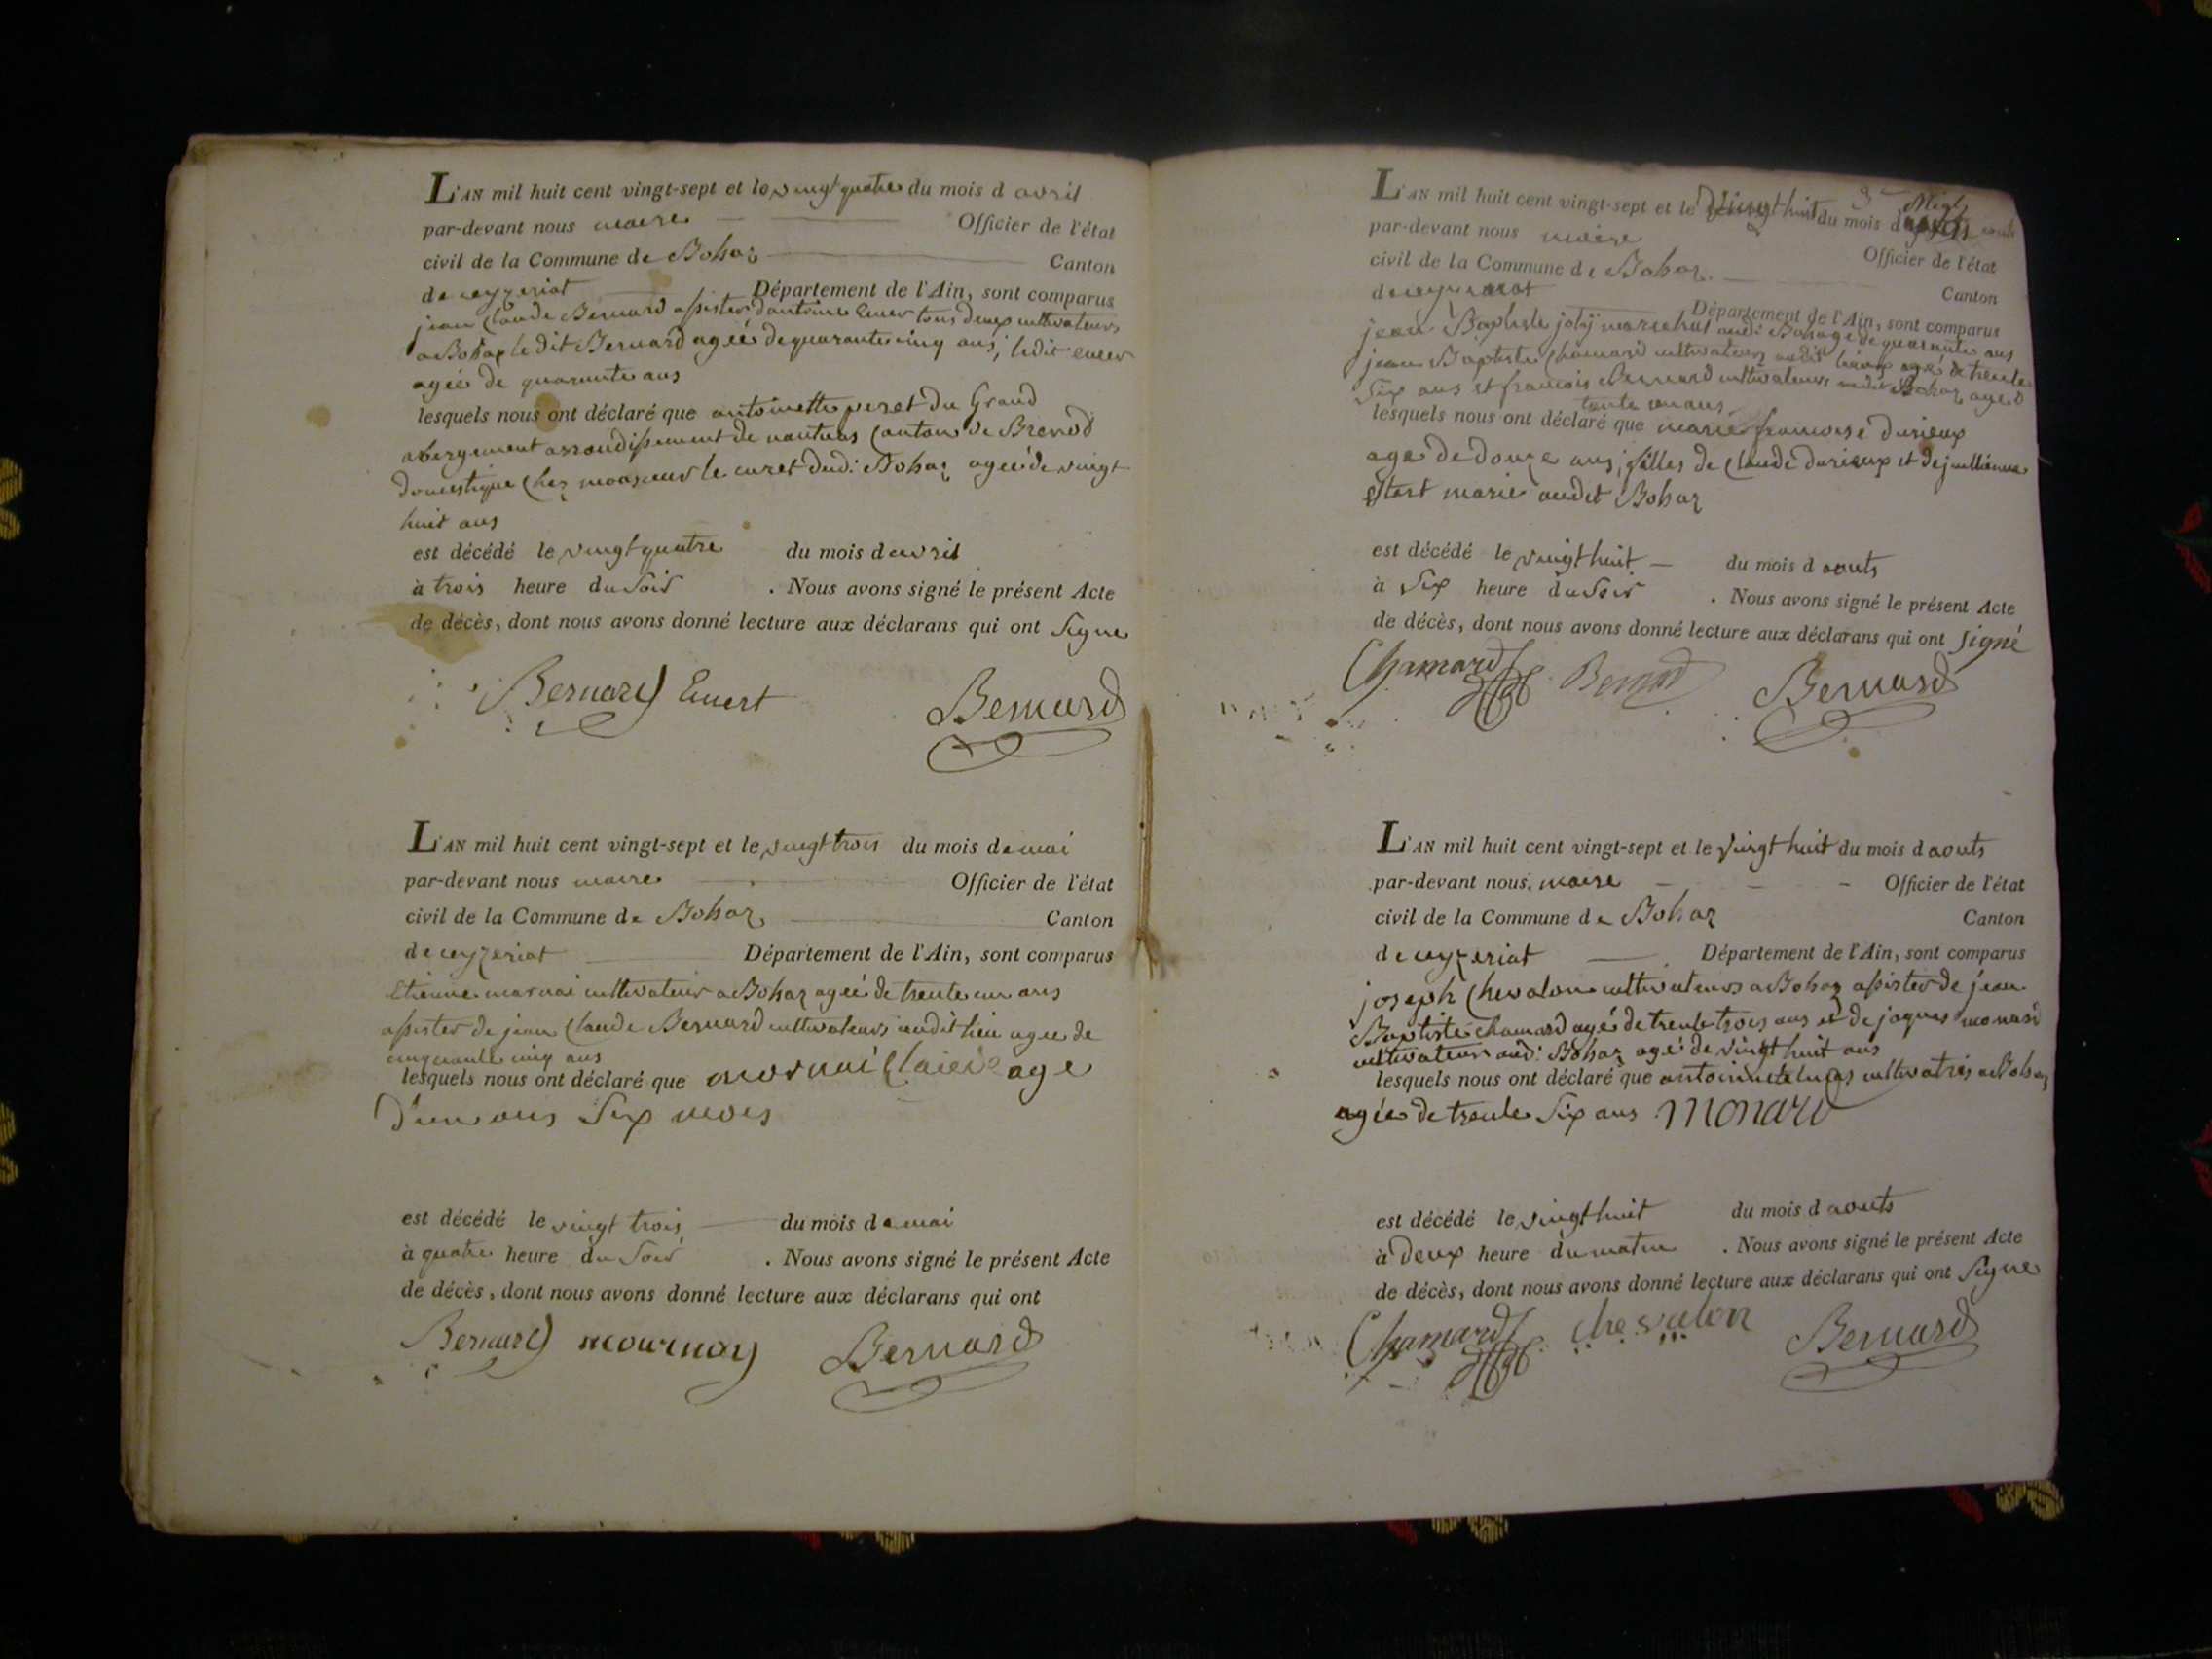 L'AN mil huit cent vingt-sept et le vingt quatre du mois d avril
par-devant nous maire Officier de l'état
civil de la Commune de Bohaz Canton
de ceyzeriat Département de l'Ain, sont comparus
jean Claude Bernard assister d'antoine Emer tous deux cultivateurs
a Bohaz le dit Bernard agée de quarante cinq ans, ledit
agée de quarante ans
lesquels nous ont déclaré que antoinette peret du Grand
abergement arrondissement de nantuas Canton de Brenod
domestique chez monsieur le curet dudi Bohaz agée de vingt
huit ans
est décédé le vingt quatre du mois d avril
à trois heure du Soir . Nous avons signé le présent Acte
de décès, dont nous avons donné lecture aux déclarans qui ont Signe
Bernard Bernard
L'AN mil huit cent vingt-sept et le vingt trois du mois de mai
par-devant nous maire Officier de l'état
civil de la Commune de Bohaz Canton
de ceyzeriat Département de l'Ain, sont comparus
Etienne mornai cultivateur a Bohaz agée de trente un ans
assister de jean Claude Bernard cultivateurs audit lieu agee de
cinquante cinq ans
lesquels nous ont déclaré que mornai age
d'un ans Six mois
est décédé le vingt trois du mois de mai
à quatre heure du Soir . Nous avons signé le présent Acte
de décès, dont nous avons donné lecture aux déclarans qui ont
Bernard mournay Bernard
L'AN mil huit cent vingt-sept et le vingt huit du mois d
par-devant nous maire Officier de l'état
civil de la Commune de Bohaz Canton
de Département de l'Ain, sont comparus
jean Baptiste joly marechal audi Bohaz age de quarante ans
jean Baptiste Chamard cultivateurs audit lieux agé de trente
Six ans et francois Bernard cultivateurs audit Bohaz age d
trente
lesquels nous ont déclaré que marie francoise Durieux
age de douze ans, filles de Claude durieux et de jullienne
marie audit Bohaz
est décédé le vingt huit du mois d aouts
à Six heure du Soir . Nous avons signé le présent Acte
de décès, dont nous avons donné lecture aux déclarans qui ont signé
Chamard Bernard Bernard
L'AN mil huit cent vingt-sept et le vingt huit du mois d aouts
par-devant nous maire Officier de l'état
civil de la Commune de Bohaz Canton
de ceyzeriat Département de l'Ain, sont comparus
joseph Chevalon cultivateurs a Bohaz assister de jean
Baptiste chamard agé de trente trois ans et de jaques monard
cultivateurs audi Bohaz agé de vingt huit ans
lesquels nous ont déclaré que cultivatris a Bohaz
agée de trente Six ans monard
est décédé le vingt huit du mois d aouts
à deux heure du matin . Nous avons signé le présent Acte
de décès, dont nous avons donné lecture aux déclarans qui ont Signe
Chamard chevalon Bernard